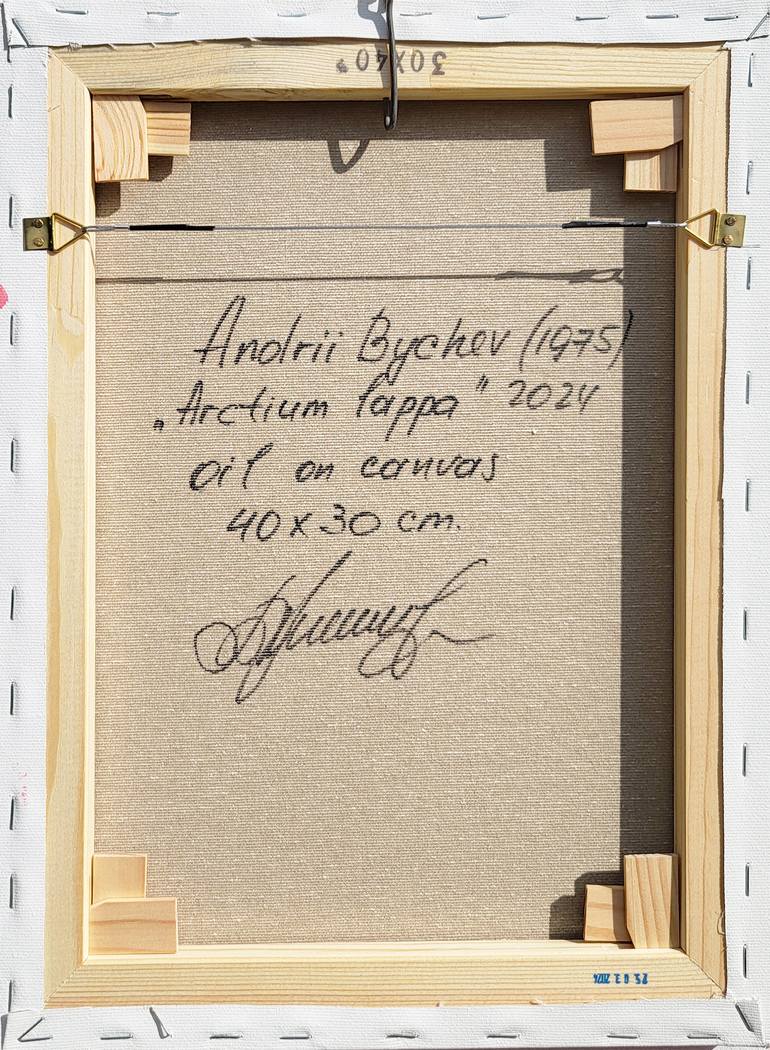 30x40
Andrii Bychev (1975)
„Arctium lappa" 2024
oil on canvas
40 x 30 cm.